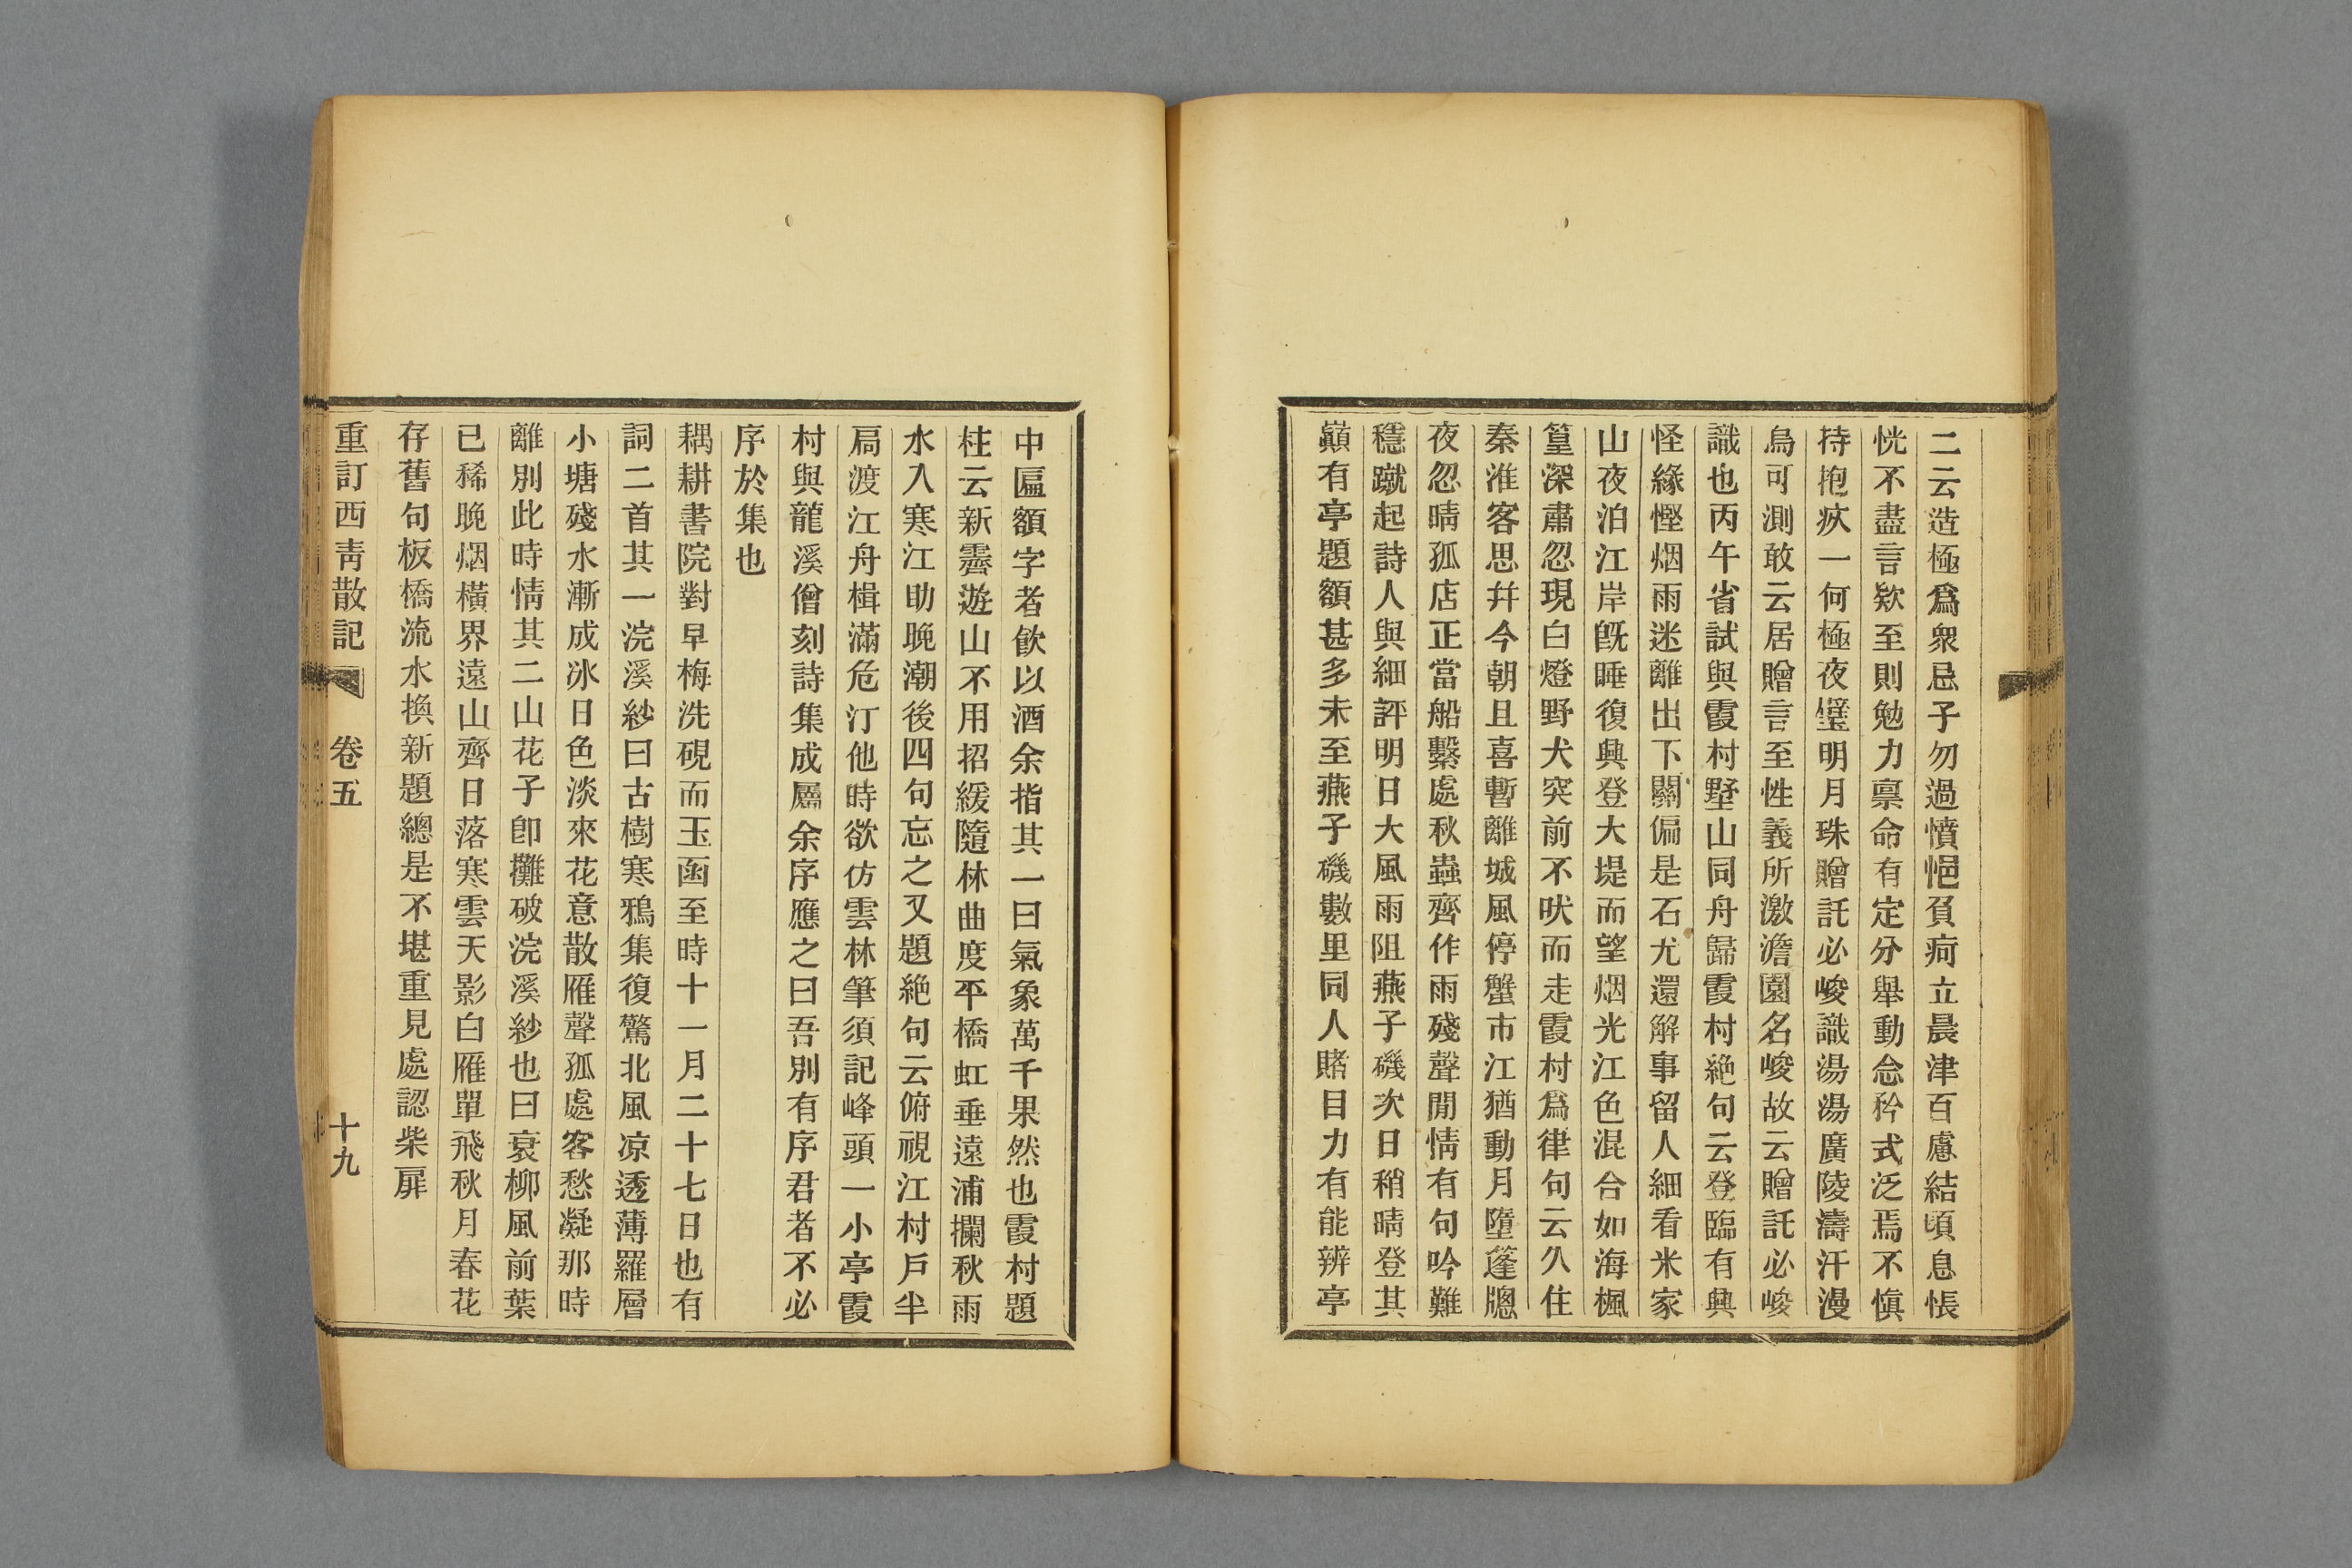 二云造極爲衆忌子勿過憤悒負疴立晨津百慮結頃息悵
恍不盡言欵至則勉力禀命有定分舉動念矜式泛焉不愼
持抱疚一何極夜璧明月珠贈託必峻識湯湯廣陵濤汗漫
烏可測敢云居贈言至性義所激澹園名峻故云贈託必峻
識也丙午省試與霞村墅山同舟歸霞村絶句云登臨有興
怪緣慳烟雨迷離出下關偏是石尤還解事留人細看米家
山夜泊江岸旣睡復興登大堤而望烟光江色混合如海楓
篁深肅忽現白燈野犬突前不吠而走霞村爲律句云久住
秦淮客思并今朝且喜暫離城風停蟹市江猶動月墮蓬牕
夜忽晴孤店正當船繫處秋蟲齊作雨殘聲閒情有句吟難
穩蹴起詩人與細評明日大風雨阻燕子磯次日稍晴登其
巔有亭題額甚多未至燕子磯數里同人賭目力有能辨亭
中匾額字者飮以酒余指其一曰氣象萬千果然也霞村題
柱云新霽遊山不用招緩隨林曲度平橋虹垂遠浦攔秋雨
水入寒江助晚潮後四句忘之又題絶句云俯視江村戶半
扃渡江舟楫滿危汀他時欲仿雲林筆須記峰頭一小亭霞
村與龍溪僧刻詩集成屬余序應之曰吾別有序君者不必
序於集也
耦耕書院對早梅洗硯而玉函至時十一月二十七日也有
詞二首其一浣溪紗曰古樹寒鴉集復驚北風凉透薄羅層
小塘殘水漸成冰日色淡來花意散雁聲孤處客愁凝那時
離別此時情其二山花子卽攤破浣溪紗也曰衰柳風前葉
已稀晚烟橫界遠山齊日落寒雲天影白雁單飛秋月春花
存舊句板橋流水換新題總是不堪重見處認柴扉
重訂西靑散記 卷五 十九